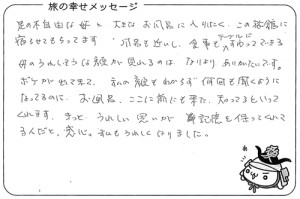 旅の幸せメッセージ
足の不自由な母と 大きなお風呂に入りたく、この旅館に
宿らせてもらってます。お風呂も近いし、食事もテーブルにすわってできる
母のうれしそうな顔が見れるのは、なによりありがたいです。
ボケが出てきて、私の顔もわからず何回も聞くように
なってるのに、お風呂、ここに前にも来た、知ってるといって
くれます。きっと、うれしい思いが身記憶を使ってくれて
るんだと、感心。私もうれしくなりました。